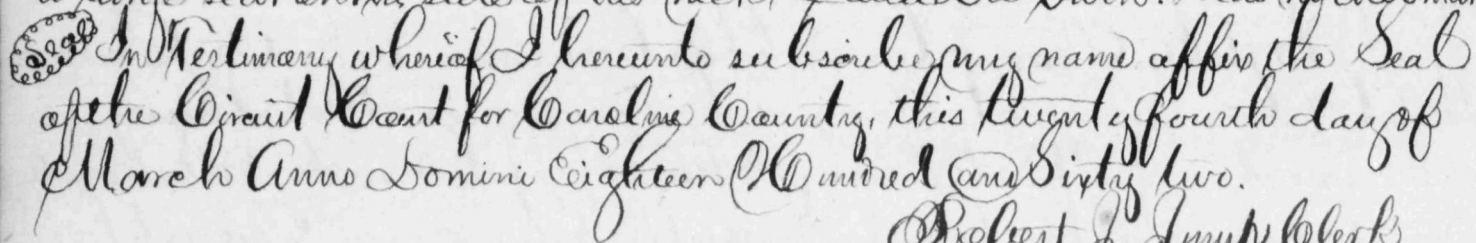 Seal In Testimony whereof I hereunto subscribe my name affix the Seal
of the Circuit Court for Caroline County, this twenty fourth day of
March Anno Domini Eighteen Hundred and Sixty two.
Robert J. Clerk